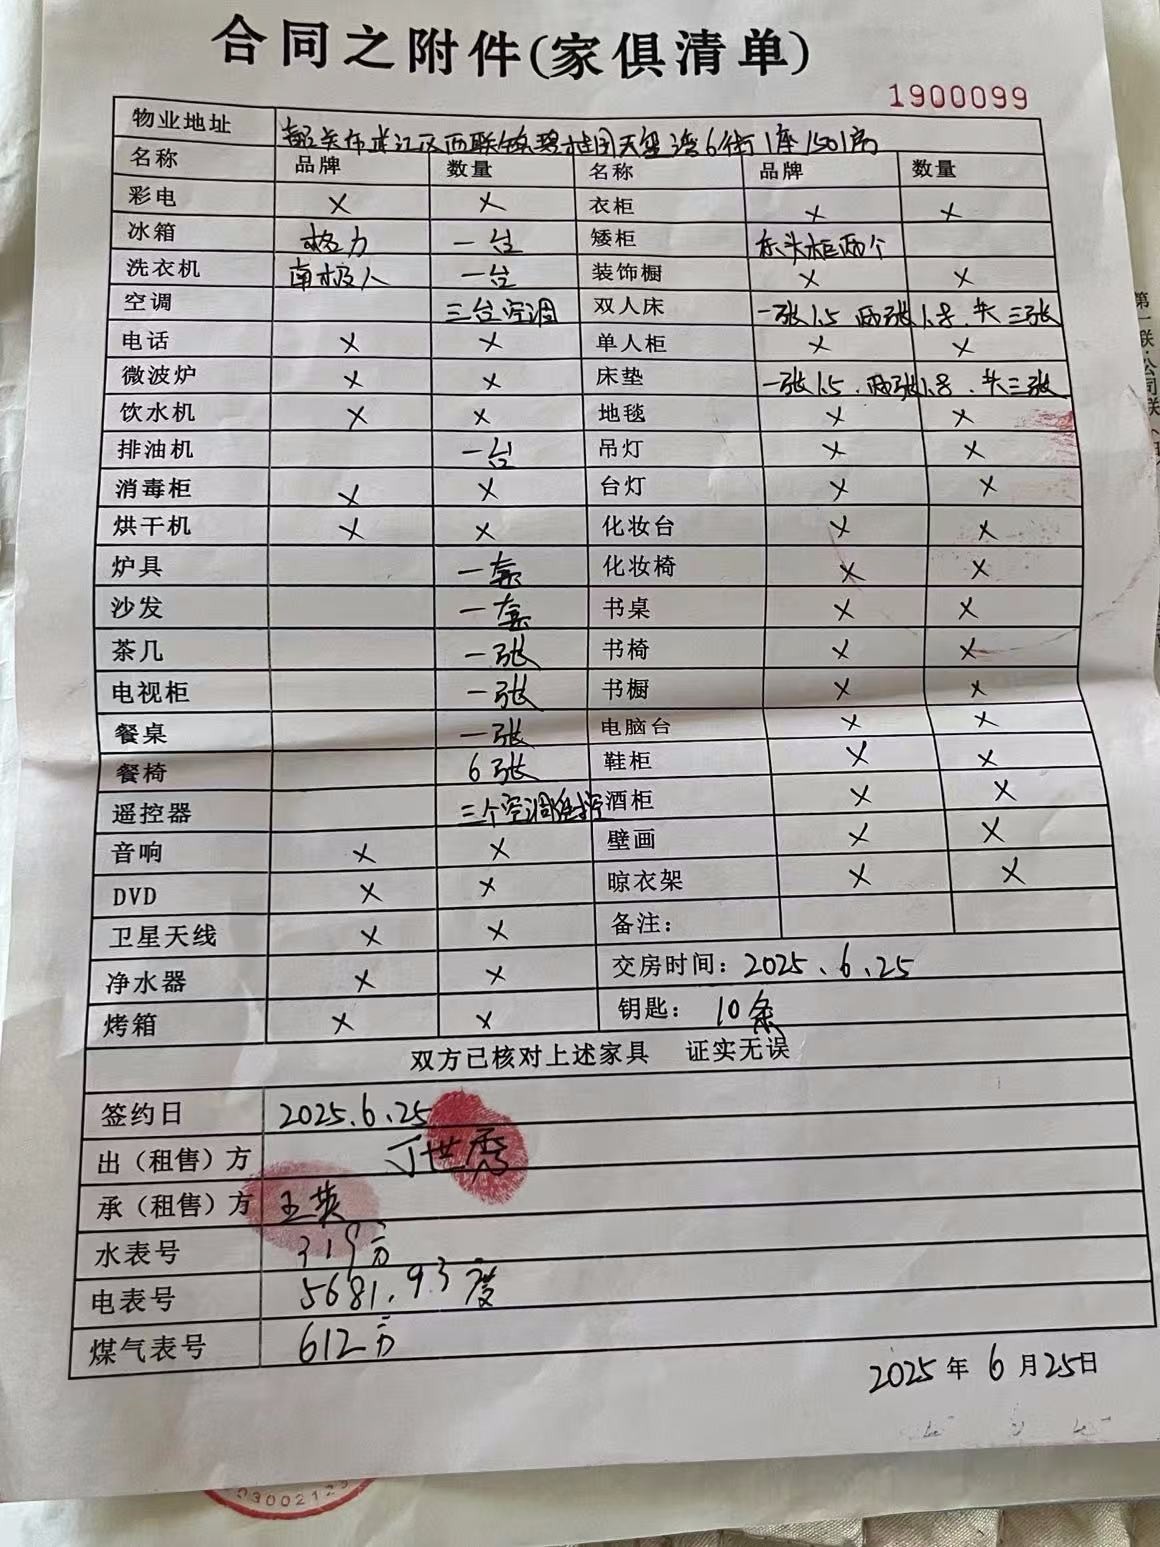 合同之附件(家俱清单)
1900099
物业地址 韶关市武江区西联镇碧桂园天玺湾6街1座1501房
名称 品牌 数量 名称 品牌 数量
彩电 × × 衣柜 × ×
冰箱 格力 一台 矮柜 床头柜两个
洗衣机 南极人 一台 装饰橱 × ×
空调 三台空调 双人床 一张1.5 两张1.8.共三张
电话 × × 单人柜 × ×
微波炉 × × 床垫 一张1.5.两张1.8.共三张
饮水机 × × 地毯 × ×
排油机 一台 吊灯 × ×
消毒柜 × × 台灯 × ×
烘干机 × × 化妆台 × ×
炉具 一套 化妆椅 × ×
沙发 一套 书桌 × ×
茶几 一张 书椅 × ×
电视柜 一张 书橱 × ×
餐桌 一张 电脑台 × ×
餐椅 6张 鞋柜 × ×
遥控器 三个空调遥控 酒柜 × ×
音响 × × 壁画 × ×
DVD × × 晾衣架 × ×
卫星天线 × × 备注:
净水器 × × 交房时间: 2025.6.25
烤箱 × × 钥匙: 10条
双方已核对上述家具 证实无误
签约日 2025.6.25
出(租售)方 丁世
承(租售)方 王英
水表号 319方
电表号 5681.93度
煤气表号 612方
2025年6月25日
第一联:公司联